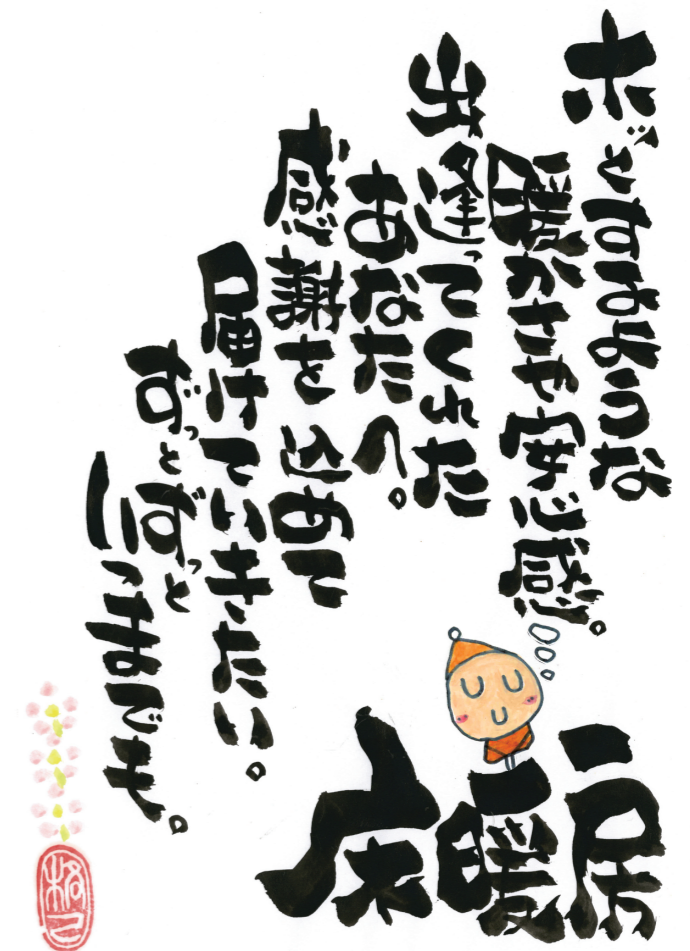 ホッとするような
暖かさや安心感。
出逢ってくれた
あなたへ。
感謝を込めて
届けていきたい。
ずっとずっと
いつまでも。
床暖房